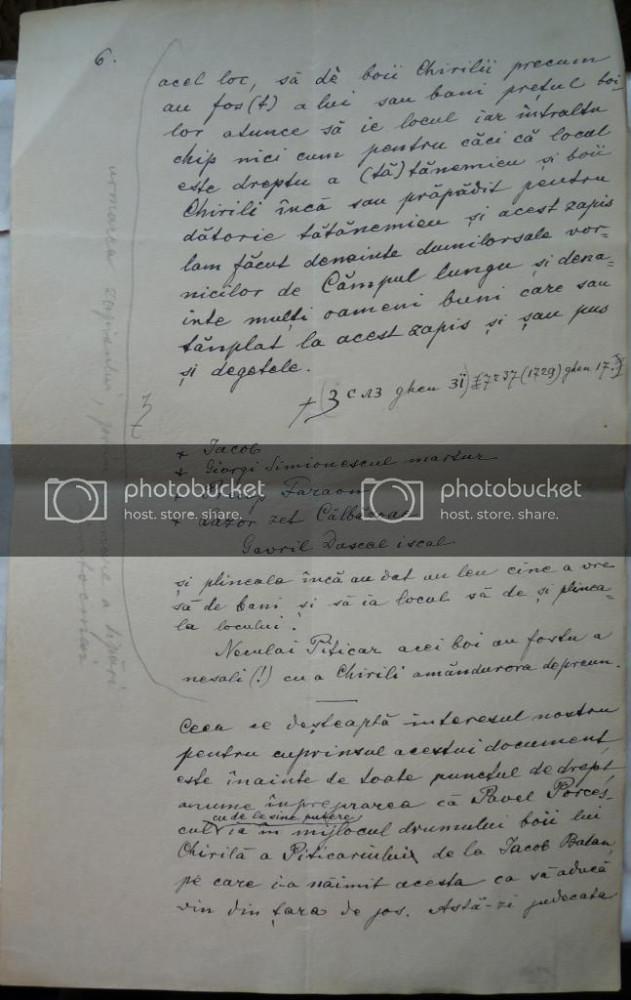 6.
acel loc, să dè boii Chirilii precum
au fos(t) a lui sau bani prețul boi-
lor atunce să ie locul iar întraltu
chip nici cum pentru căci că locul
este dreptu a (tă) tănemieu și boii
Chirili încă sau prăpădit pentru
dătorie tătănemieu și acest zapis
lam făcut denainte dumilorsale vor=
nicilor de Câmpul lungu și dena=
inte mulți oameni buni care sau
tânplat la acest zapis și șau pus
și degetele.
ghen 17.
+ Iacob
+ Giorgi Simionescul martur
Faraon
+ zet
Gavril Dascal iscal
și plineala încă au dat un leu cine a vre
să de bani și să ia locul să de și plinea-
la locului.
Neculai Piticar acei boi au fostu a
nesali (!) cu a Chirili amândurora depreun.
Ceea ce deșteaptă interesul nostru
pentru cuprinsul acestui document
este înainte de toate punctul de drept
anume împreprarea că Pavel Porces-
cu de le sine putere
cul ia în mijlocul drumului boii lui
Chirilă a Piticariului de la Iacob Batan,
pe care i-a năimit acesta ca să aducă
vin din țara de jos. Astă-zi judecata
urmarea zapisului,
photobucket
host. store. share.
photobucket
host. store. share.